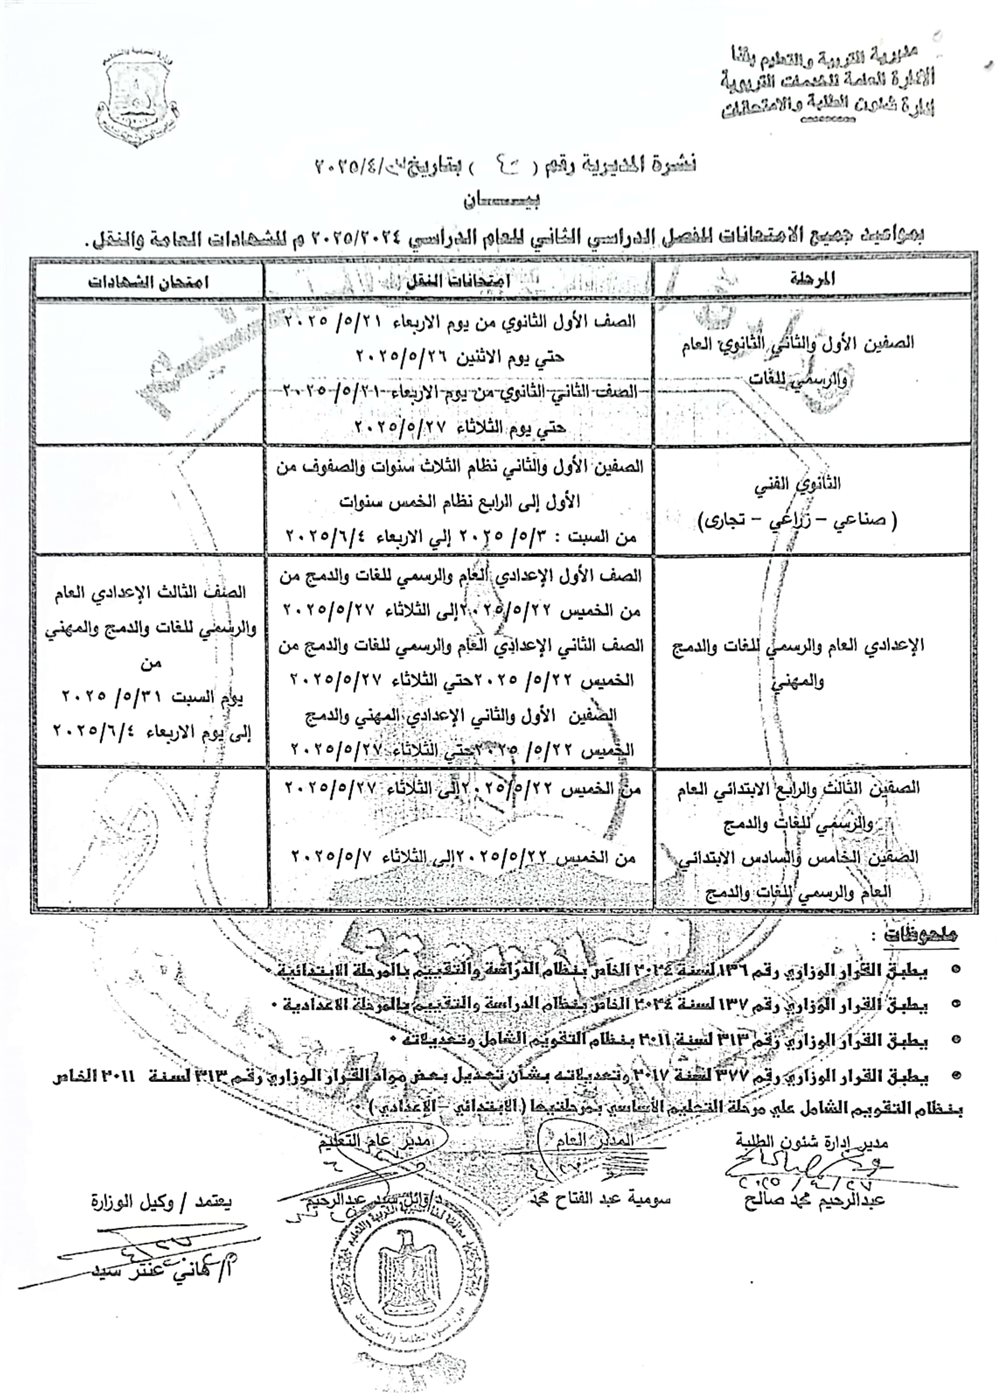 مديرية التربية والتعليم بقنا
الإدارة العامة للخدمات التربوية
إدارة شئون الطلبة والامتحانات
نشرة المديرية رقم ( ) بتاريخ /٢٠٢٥/٤
بيـــــان
بمواعيد جميع الامتحانات للفصل الدراسي الثاني للعام الدراسي ٢٠٢٥/٢٠٢٤ م للشهادات العامة والنقل.
المرحلة
امتحانات النقل
امتحان الشهادات
الصفين الأول والثاني الثانوي العام
والرسمي للغات
الصف الأول الثانوي من يوم الاربعاء ٢١/٥/ ٢٠٢٥
حتي يوم الاثنين ٢٠٢٥/٥/٢٦
الصف الثاني الثانوي من يوم الاربعاء ٢١/٥/ ٢٠٢٥
حتي يوم الثلاثاء ٢٠٢٥/٥/٢٧
الثانوي الفني
( صناعي – زراعي – تجارى)
الصفين الأول والثاني نظام الثلاث سنوات والصفوف من
الأول إلى الرابع نظام الخمس سنوات
من السبت : ٣/٥/ ٢٠٢٥ إلي الاربعاء ٢٠٢٥/٦/٤
الإعدادي العام والرسمي للغات والدمج
والمهني
الصف الأول الإعدادي العام والرسمي للغات والدمج من
من الخميس ٢٠٢٥/٥/٢٢إلى الثلاثاء ٢٠٢٥/٥/٢٧
الصف الثاني الإعدادي العام والرسمي للغات والدمج من
الخميس ٢٢/٥/ ٢٠٢٥حتي الثلاثاء ٢٠٢٥/٥/٢٧
الصفين الأول والثاني الإعدادي المهني والدمج
الخميس ٢٢/٥/ ٢٠٢٥حتي الثلاثاء ٢٠٢٥/٥/٢٧
الصف الثالث الإعدادي العام
والرسمي للغات والدمج والمهني
من
يوم السبت ٣١/٥/ ٢٠٢٥
إلى يوم الاربعاء ٢٠٢٥/٦/٤
الصفين الثالث والرابع الابتدائي العام
والرسمي للغات والدمج
الصفين الخامس والسادس الابتدائي
العام والرسمي للغات والدمج
من الخميس ٢٠٢٥/٥/٢٢إلى الثلاثاء ٢٠٢٥/٥/٢٧
من الخميس ٢٠٢٥/٥/٢٢إلى الثلاثاء ٢٠٢٥/٥/٧
ملحوظات :
• يطبق القرار الوزاري رقم ١٣٦ لسنة ٢٠٢٤ الخاص بنظام الدراسة والتقييم بالمرحلة الابتدائية .
• يطبق القرار الوزاري رقم ١٣٧ لسنة ٢٠٢٤ الخاص بنظام الدراسة والتقييم بالمرحلة الاعدادية .
• يطبق القرار الوزاري رقم ٣١٣ لسنة ٢٠١١ بنظام التقويم الشامل وتعديلاته .
• يطبق القرار الوزاري رقم ٣٧٧ لسنة ٢٠١٧ وتعديلاته بشأن تعديل بعض مواد القرار الوزاري رقم ٣١٣ لسنة ٢٠١١ الخاص
بنظام التقويم الشامل علي مرحلة التعليم الأساسي بمرحلتيها ( الابتدائي – الإعدادي ) .
مدير إدارة شئون الطلبة
المدير العام
مدير عام التعليم
٢٠٢٥/٤/٢٧
عبدالرحيم محمد صالح
سومية عبد الفتاح محمد
سيد عبدالرحيم
يعتمد / وكيل الوزارة
أ/ هاني عنتر سيد